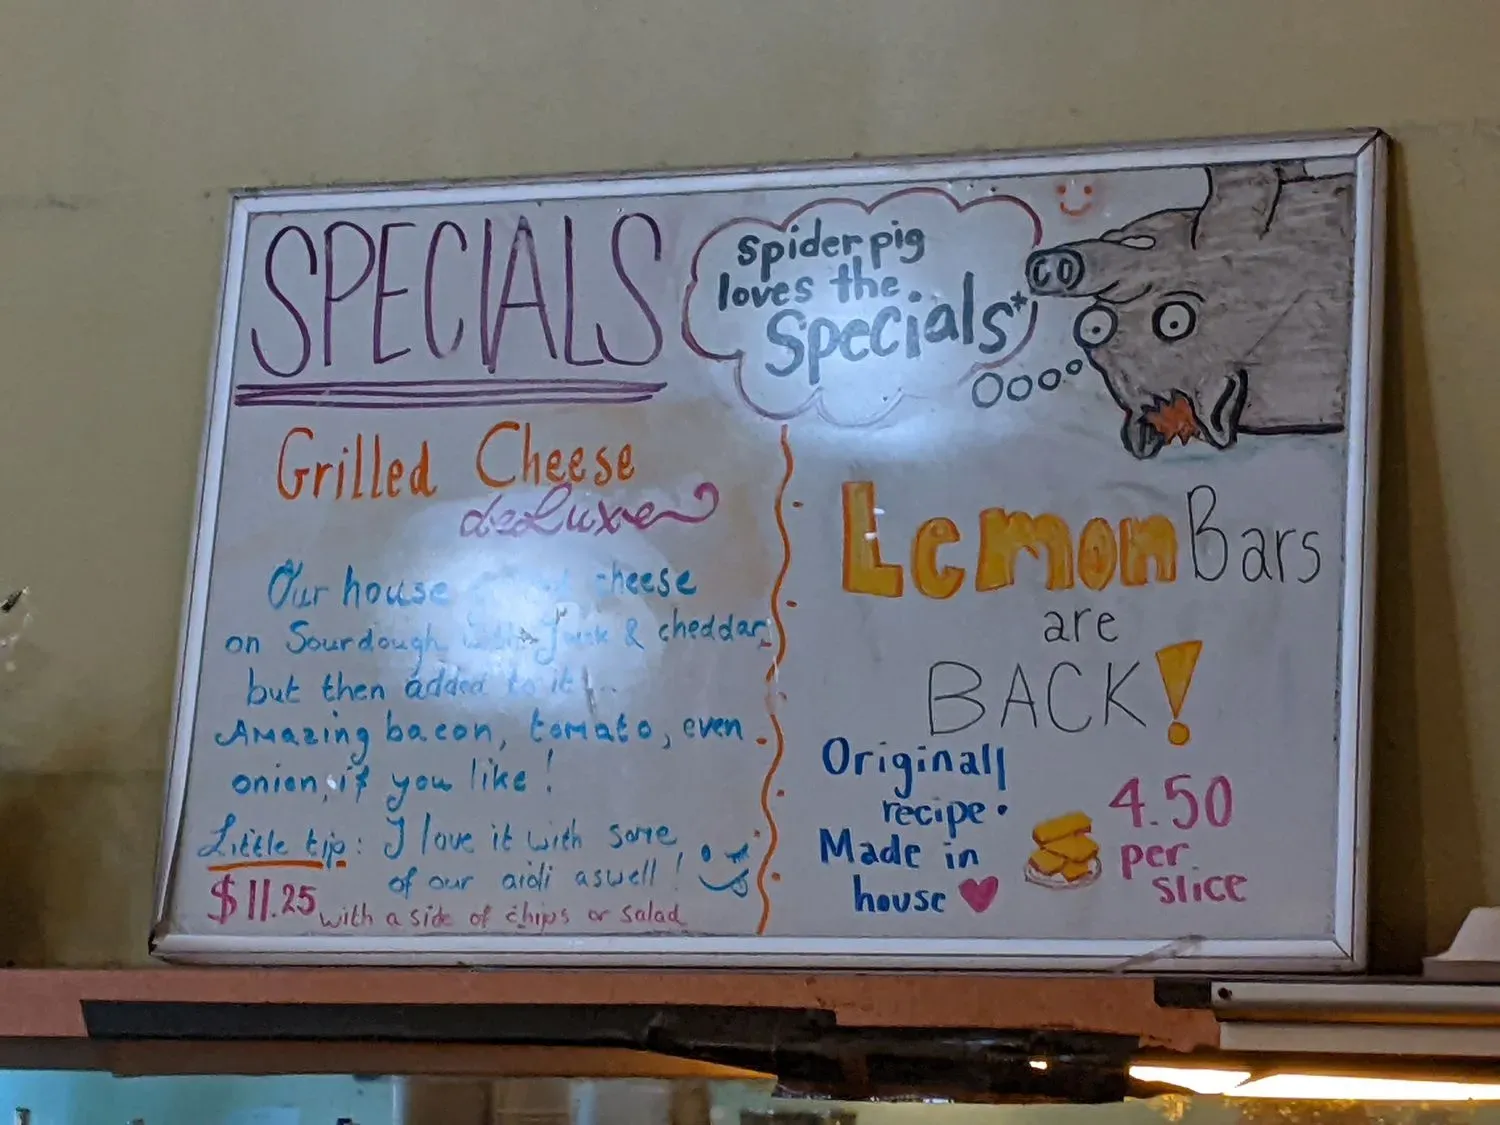 SPECIALS
Spider pig
loves the
Specials*
Grilled Cheese
deLuxe
Our house cheese
on Sourdough Jack & cheddar,
but then added to it...
Amazing bacon, tomato, even
onion, if you like!
Little tip: I love it with some
of our aioli aswell!
$11.25 with a side of chips or salad
Lemon Bars
are
BACK!
Originall
recipe.
Made in
house
4.50
per
slice